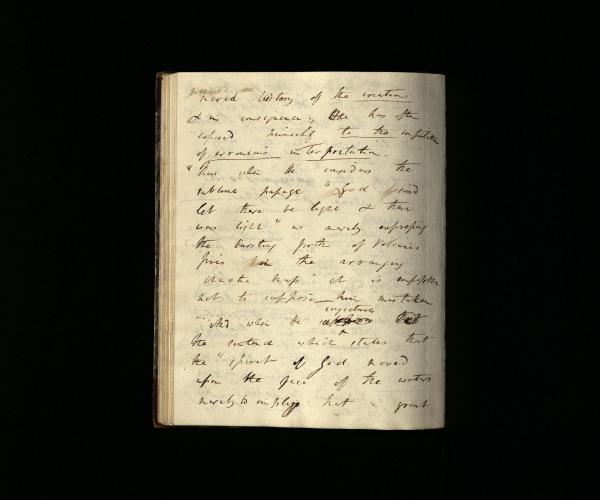 sacred history of the creation
& in consequence, He has often
exposed himself to the imputation
of erroneous interpretation.
"Thus when He considers the
sublime passage "God said
let there be light & there
was light" as merely expressing
the bursting forth of Volcanic
fires in the arranging
chaotic mass" it is impossible
not to suppose him mistaken
conjectures
"And when He that
the sentence which states that
the "spirit of God moved
upon the face of the waters
merely to imply that a great